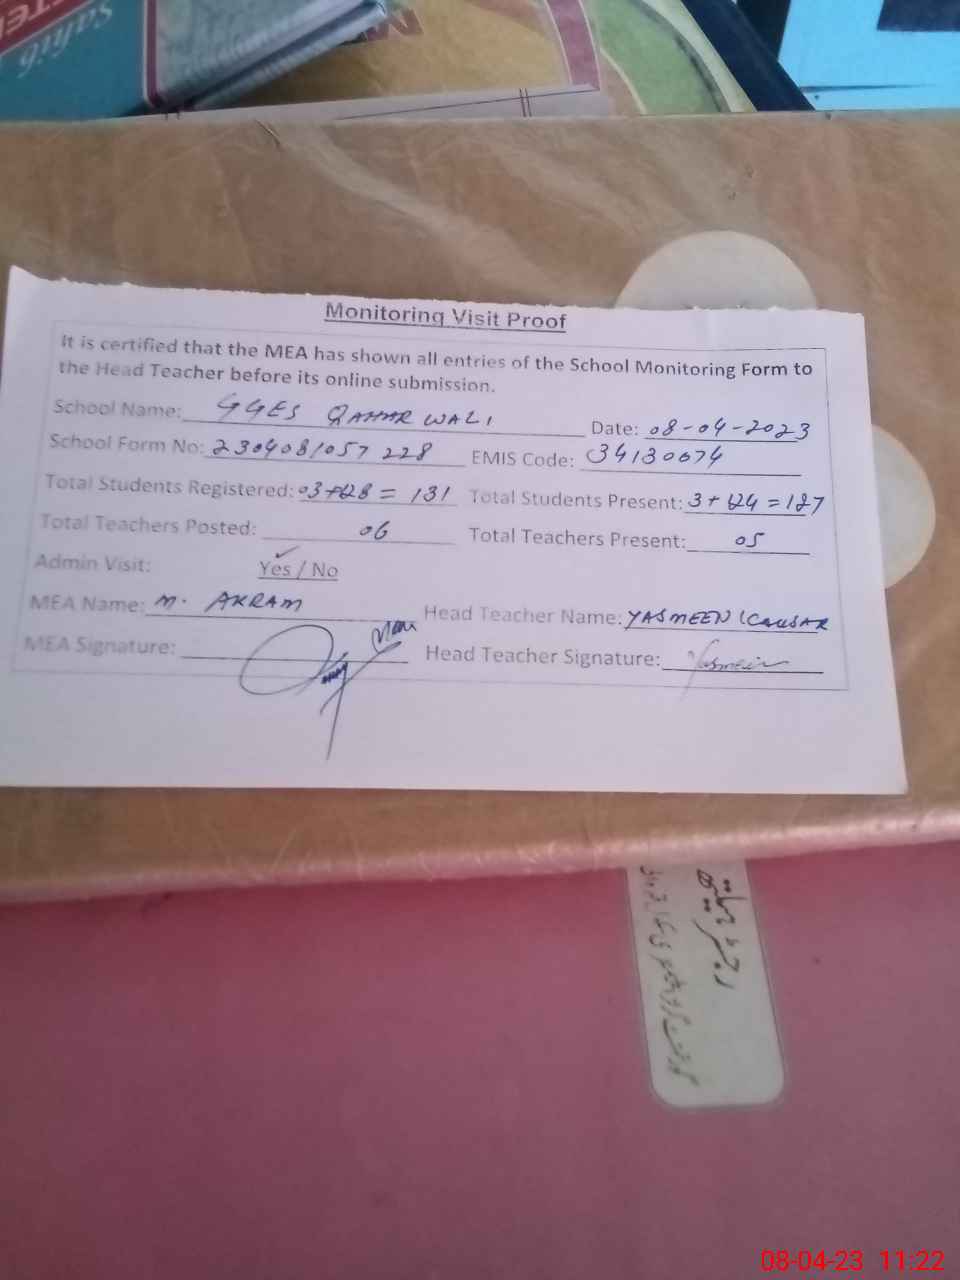 Monitoring Visit Proof
It is certified that the MEA has shown all entries of the School Monitoring Form to
the Head Teacher before its online submission.
School Name: GGES QAHAR WALI Date: 08-04-2023
School Form No: 2304081057 228 EMIS Code: 34130674
Total Students Registered: 03+128 = 131 Total Students Present: 3+124=127
Total Teachers Posted: 06 Total Teachers Present: 05
Admin Visit: Yes / No
MEA Name: M. AKRAM Head Teacher Name: YASMEEN KAUSAR
MEA Signature: Head Teacher Signature: Yasmein
08-04-23 11:22